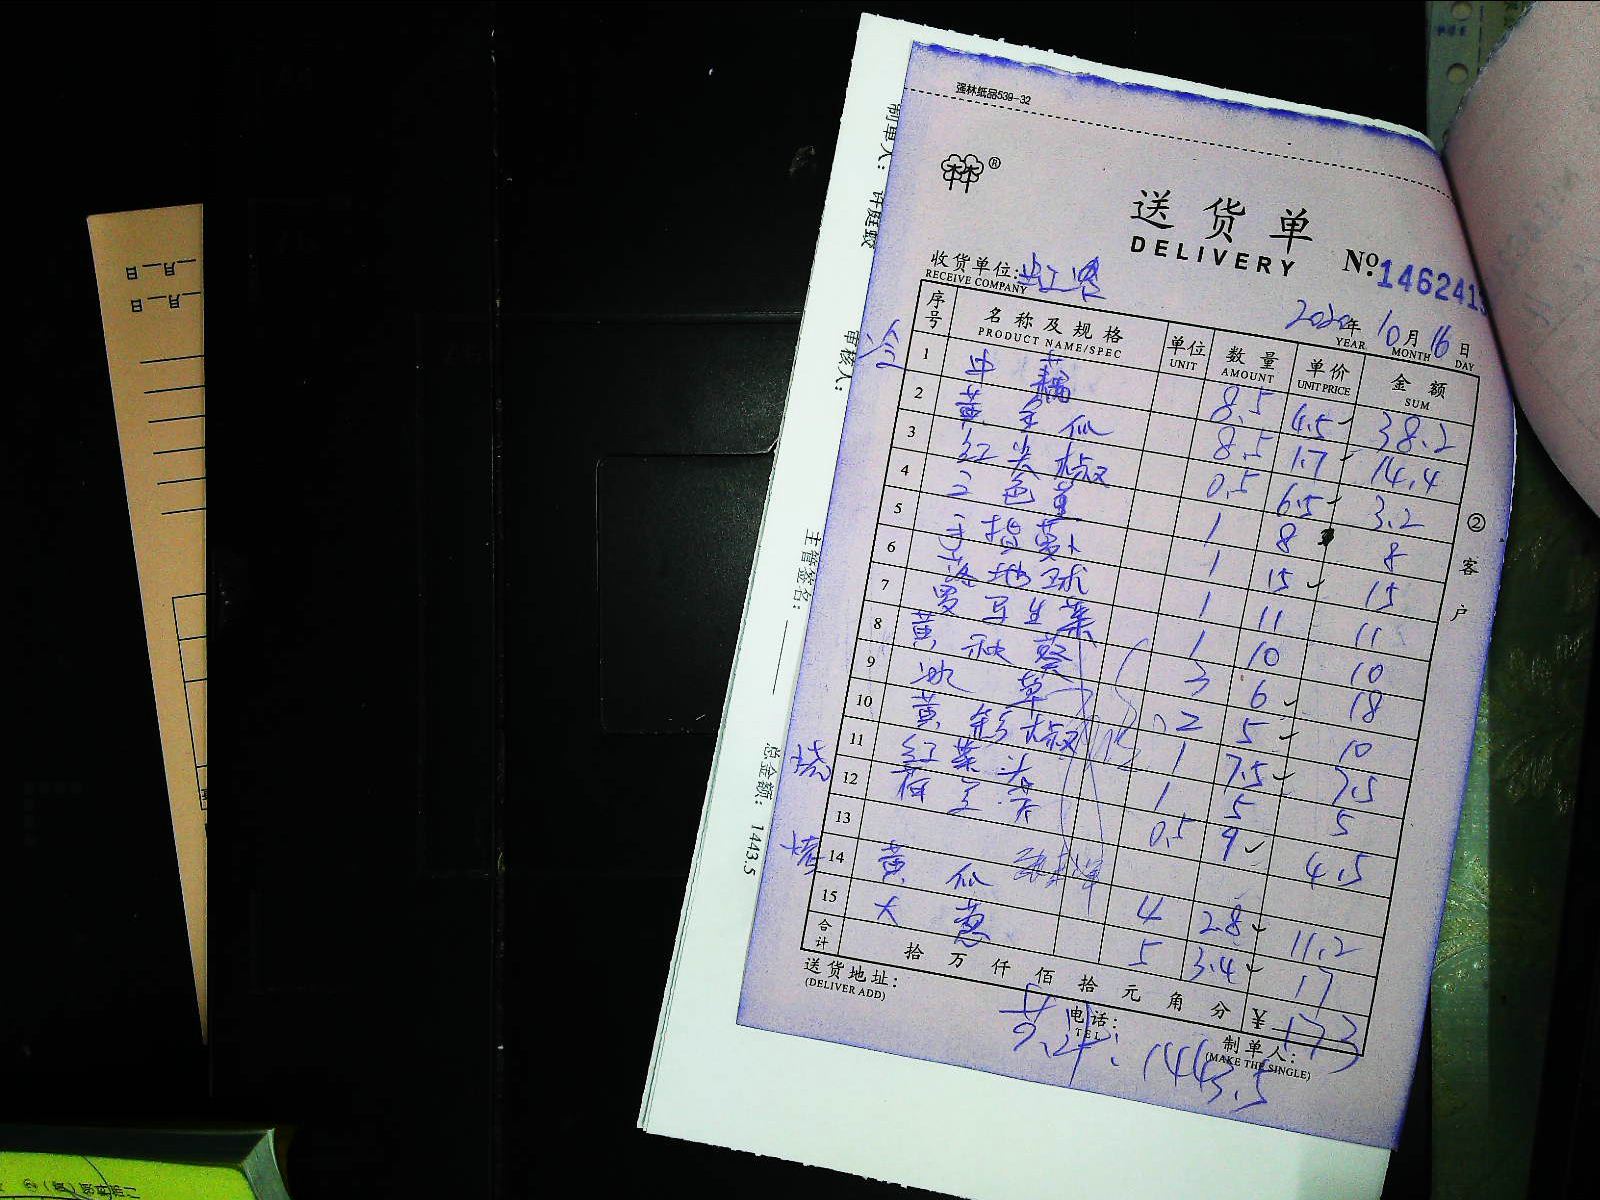 强林纸品539-32
®
送货单
DELIVERY
№ 146241
收货单位:
RECEIVE COMPANY
2020年 10月 16日
YEAR MONTH DAY
序号 名称及规格 单位 数量 单价 金额
PRODUCT NAME/SPEC UNIT AMOUNT UNIT PRICE SUM
冷
1 中 藕 8.5 4.5 38.2
2 黄金仙 8.5 1.7 14.4
3 红尖椒 0.5 6.5 3.2
4 三色堇 1 8 8
5 手指萝卜 1 15 15
6 落地球 1 11 11
7 罗马生菜 1 10 10
8 黄秋葵 3 6 18
9 冰草 2 5 10
10 黄彩椒 1 7.5 7.5
11 红菜头 1 5 5
12 荷兰芹 0.5 9 4.5
13
14 黄仙 4 2.8 11.2
15 大葱 5 3.4 17
合计 拾万仟佰拾元角分 ¥ 173
送货地址:
(DELIVER ADD)
电话:
TEL
制单人:
(MAKE THE SINGLE)
共计: 1443.5
② 客户
制单人: 许庭蛟
审核人:
主管签名:
总金额: 1443.5
日 月
日 月